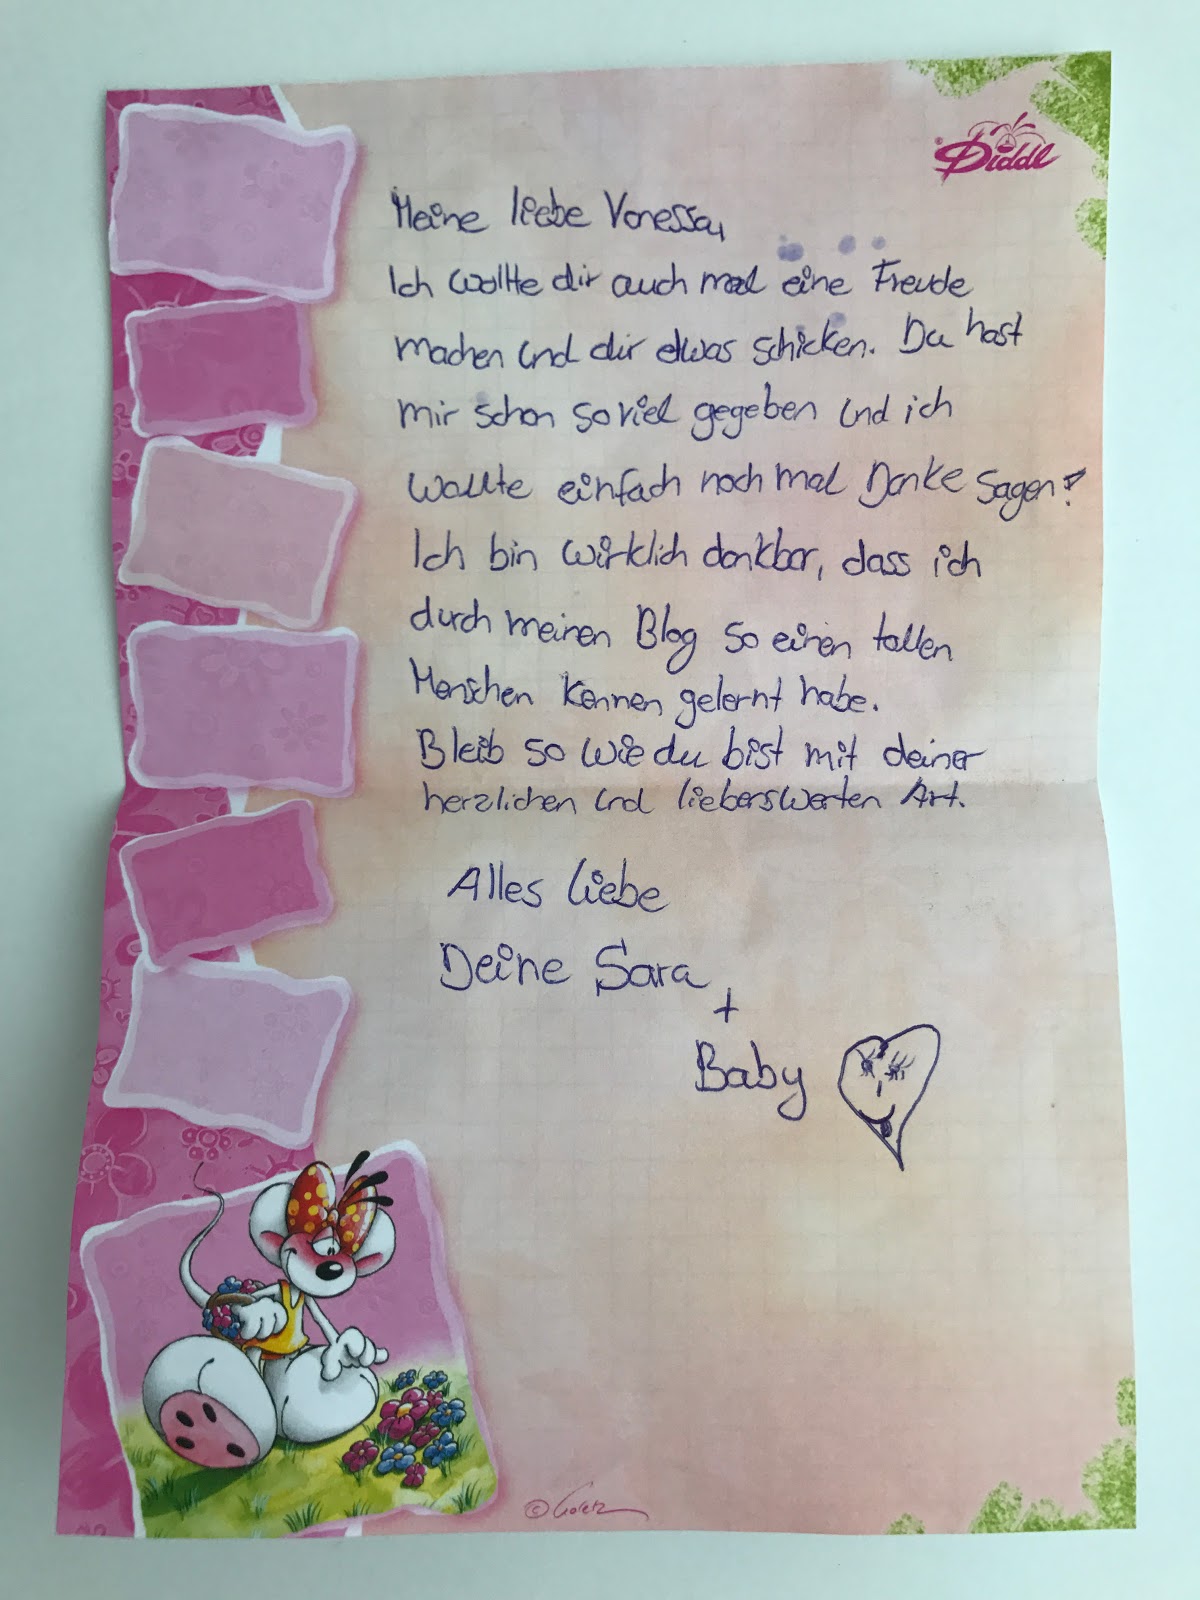 Diddl
Meine liebe Vanessa,
Ich wollte dir auch mal eine Freude
machen und dir etwas schicken. Du hast
mir schon soviel gegeben und ich
wollte einfach noch mal Danke sagen!
Ich bin wirklich dankbar, dass ich
durch meinen Blog so einen tollen
Menschen kennen gelernt habe.
Bleib so wie du bist mit deiner
herzlichen und lieberswerten Art.
Alles Liebe
Deine Sara
+
Baby
© Goletz